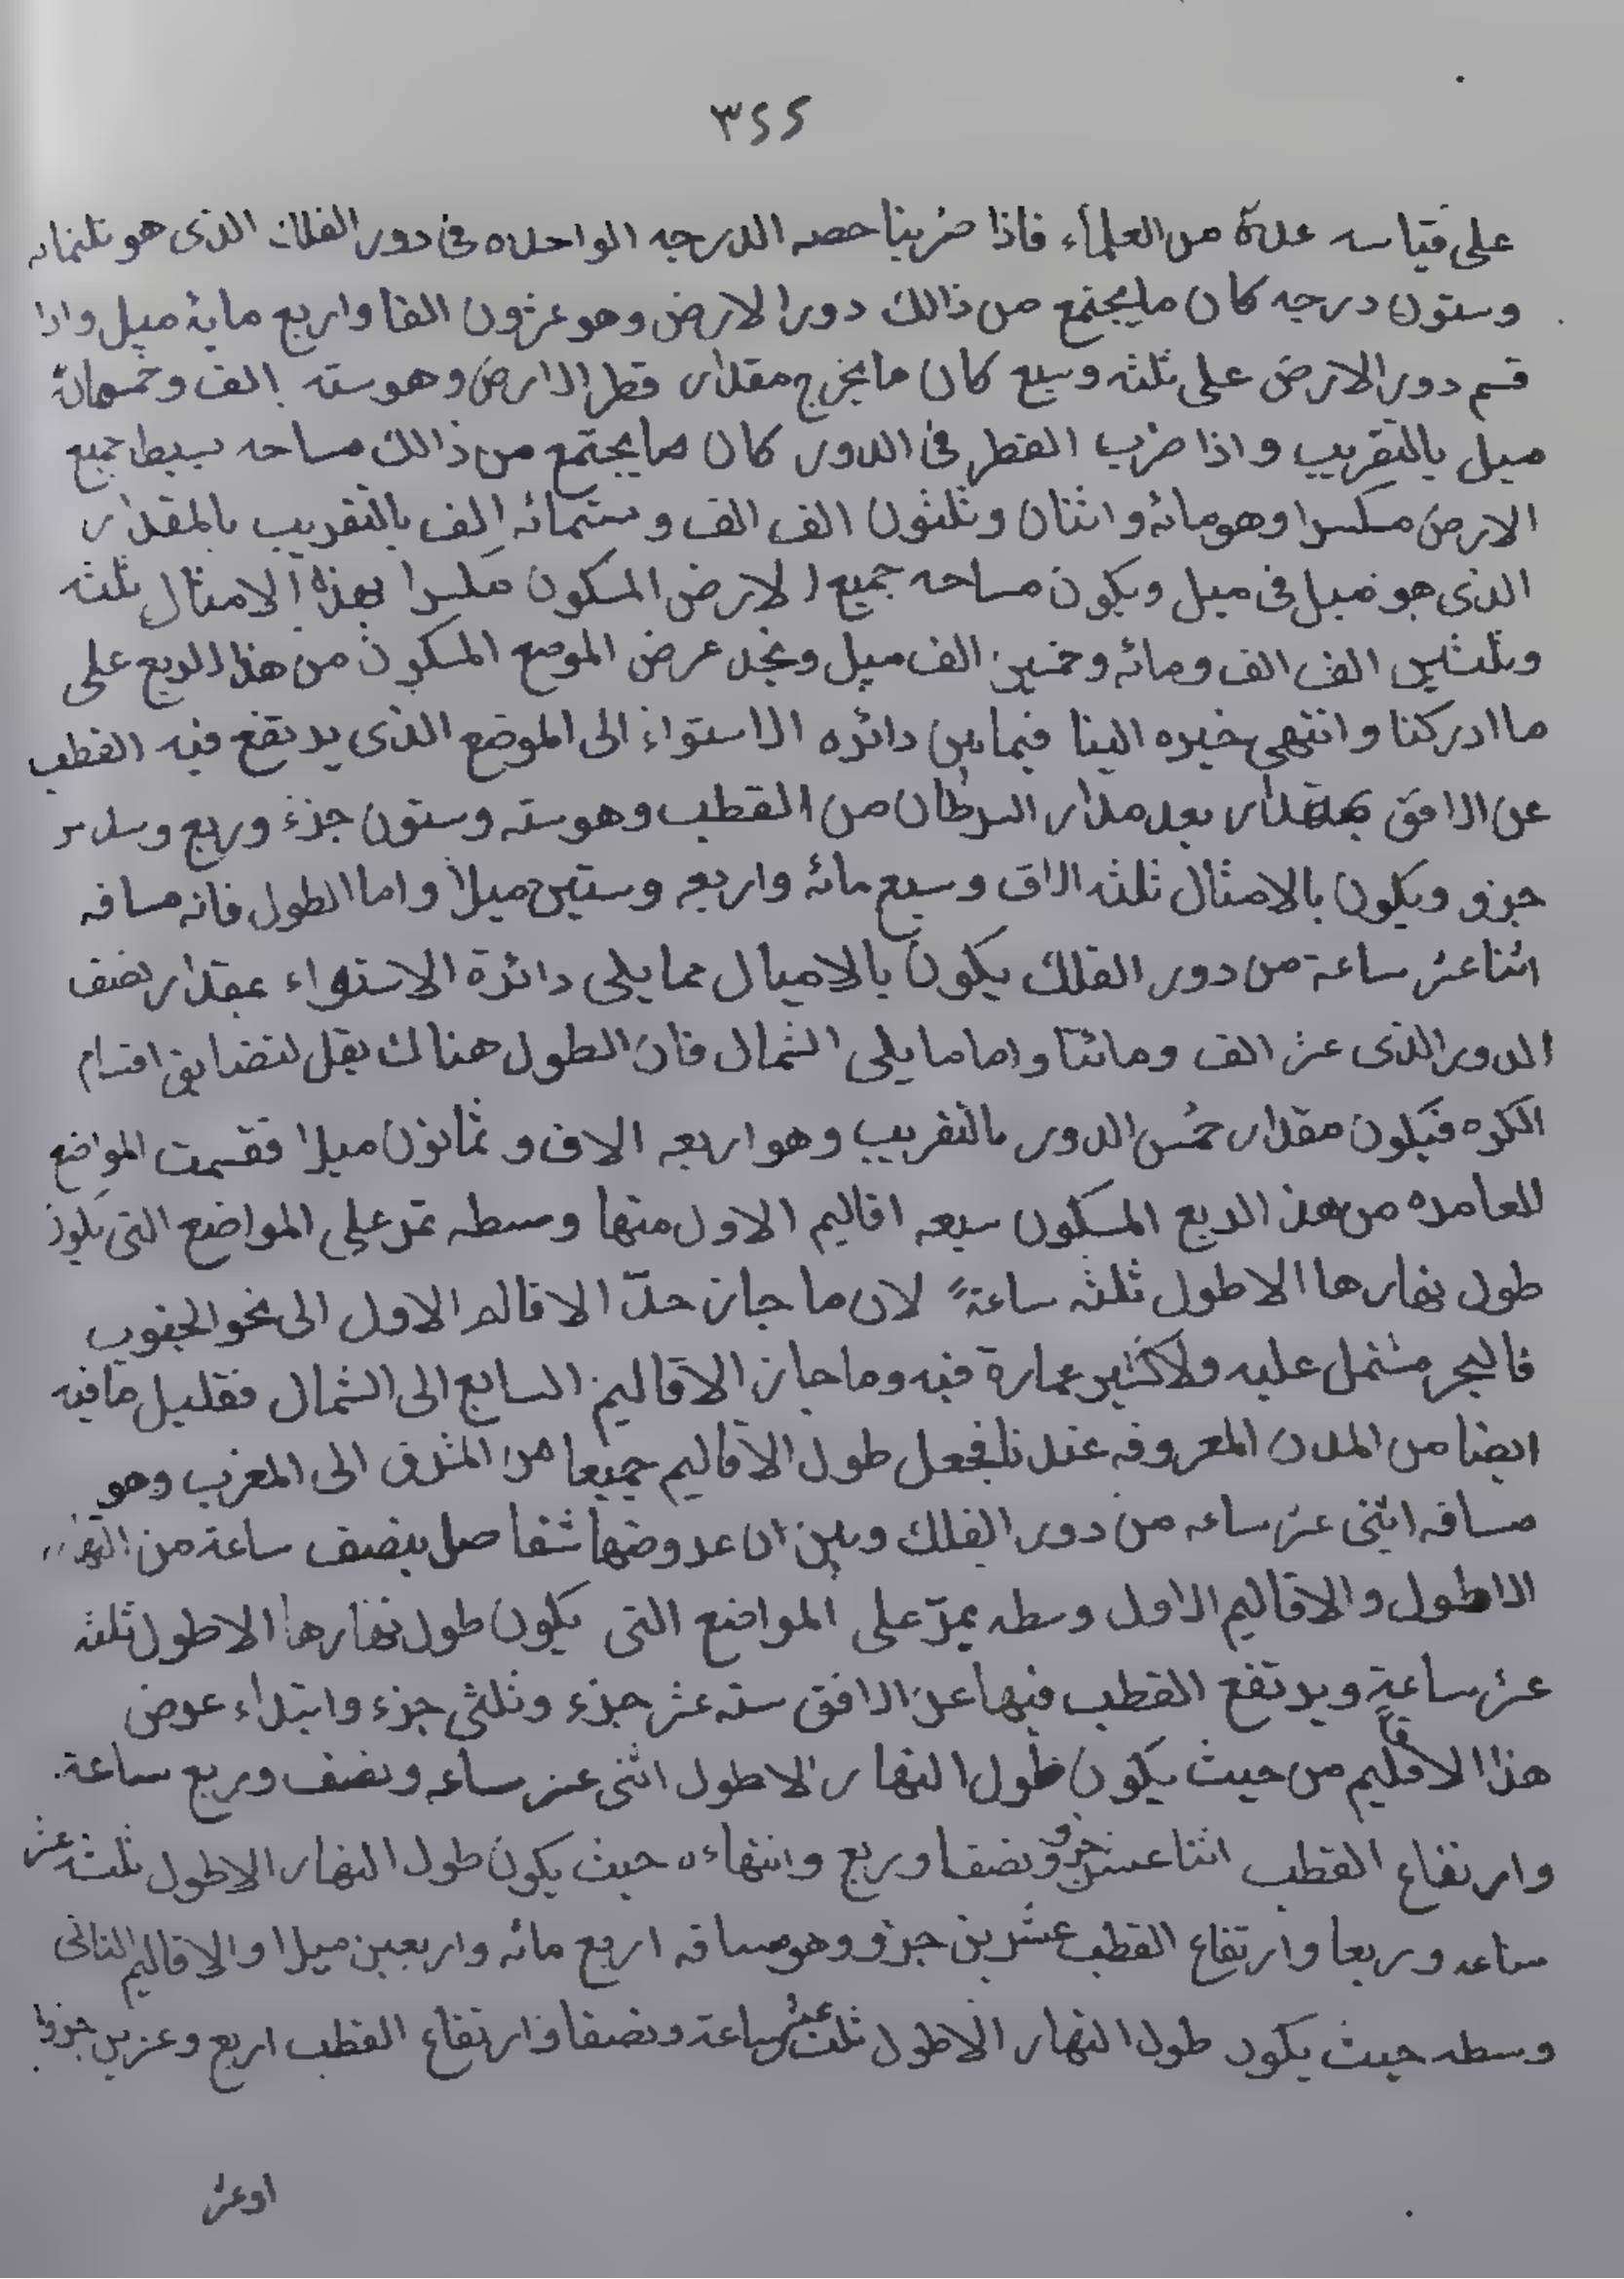 ٣٤٤
على قياسه عدة من العلماء فاذا ضربنا حصه الدرجه الواحده فى دور الفلك الذى هو ثلثمائه
وستون درجه كان ما يجتمع من ذالك دور الارض وهو عشرون الفا واربع مایة ميل واذا
قسم دور الارض على ثلثه وسبع كان ما يخرج مقدار قطر الارض وهو سته الف وخمسمائة
ميل بالتقريب واذا ضرب القطر فى الدور كان ما يجتمع من ذالك مساحه بسيط جميع
الارض مكسرا وهو مائه واثنان وثلثون الف الف وستمائه الف بالتقريب بالمقدار
الذى هو ميل فى ميل ويكون مساحه جميع الارض المسكون مكسرا بهذه الامثال ثلثه
وثلثين الف الف ومائه وخمسين الف ميل ونجد عرض الموضع المسكون من هذا الربع على
ما ادركنا وانتهى خبره الينا فيما بين دائره الاستواء الى الموضع الذى يرتفع فيه القطب
عن الافق بمقدار بعد مدار السرطان من القطب وهو سته وستون جزء وربع وسدس
جزو ويكون بالامثال ثلثه الاف وسبع مائه واربعه وستين ميلا واما الطول فانه مسافه
اثنا عشر ساعة من دور الفلك يكون بالاميال مما يلى دائرة الاستواء بمقدار نصف
الدور الذى عشر الف ومائتا واما ما يلى الشمال فان الطول هناك يقل لتضايق اقسام
الكره فيكون مقدار خمس الدور بالتقريب وهو اربعه الاف و ثمانون ميلا فقسمت المواضع
للعامره من هذ الربع المسكون سبعه اقاليم الاول منها وسطه تمر على المواضع التى يكون
طول نهارها الاطول ثلثه ساعة لان ما جاز حدّ الاقالم الاول الى نحو الجنوب
فالبحر مشتمل عليه ولا كثير عمارة فيه وما جاز الاقاليم السابع الى الشمال فقليل ما فيه
ايضا من المدن المعروفه عندنا فجعل طول الاقاليم جميعا من المشرق الى المغرب وهو
مسافه اثنى عشر ساعه من دور الفلك وبين ان عروضها تتفاصل بنصف ساعة من النهار
الاطول والاقاليم الاول وسطه يمرّ على المواضع التى يكون طول نهارها الاطول ثلثه
عشر ساعة ويرتفع القطب فيها عن الافق سته عشر جزء وثلثى جزء وابتداء عرض
هذا الاقليم من حيث يكون طول النهار الاطول اثنى عشر ساعه ونصف وربع ساعة
وارتفاع القطب اثنا عشر جزو ونصفا وربع وانتهاءه حيث يكون طول النهار الاطول ثلثه عشر
ساعه وربعا وارتفاع القطب عشرين جزو وهو مسافه اربع مائه واربعين ميلا والاقاليم الثانى
وسطه حيث يكون طول النهار الاطول ثلث عشر ساعة ونصفا وارتفاع القطب اربع وعشرين جزوا
اوعشر